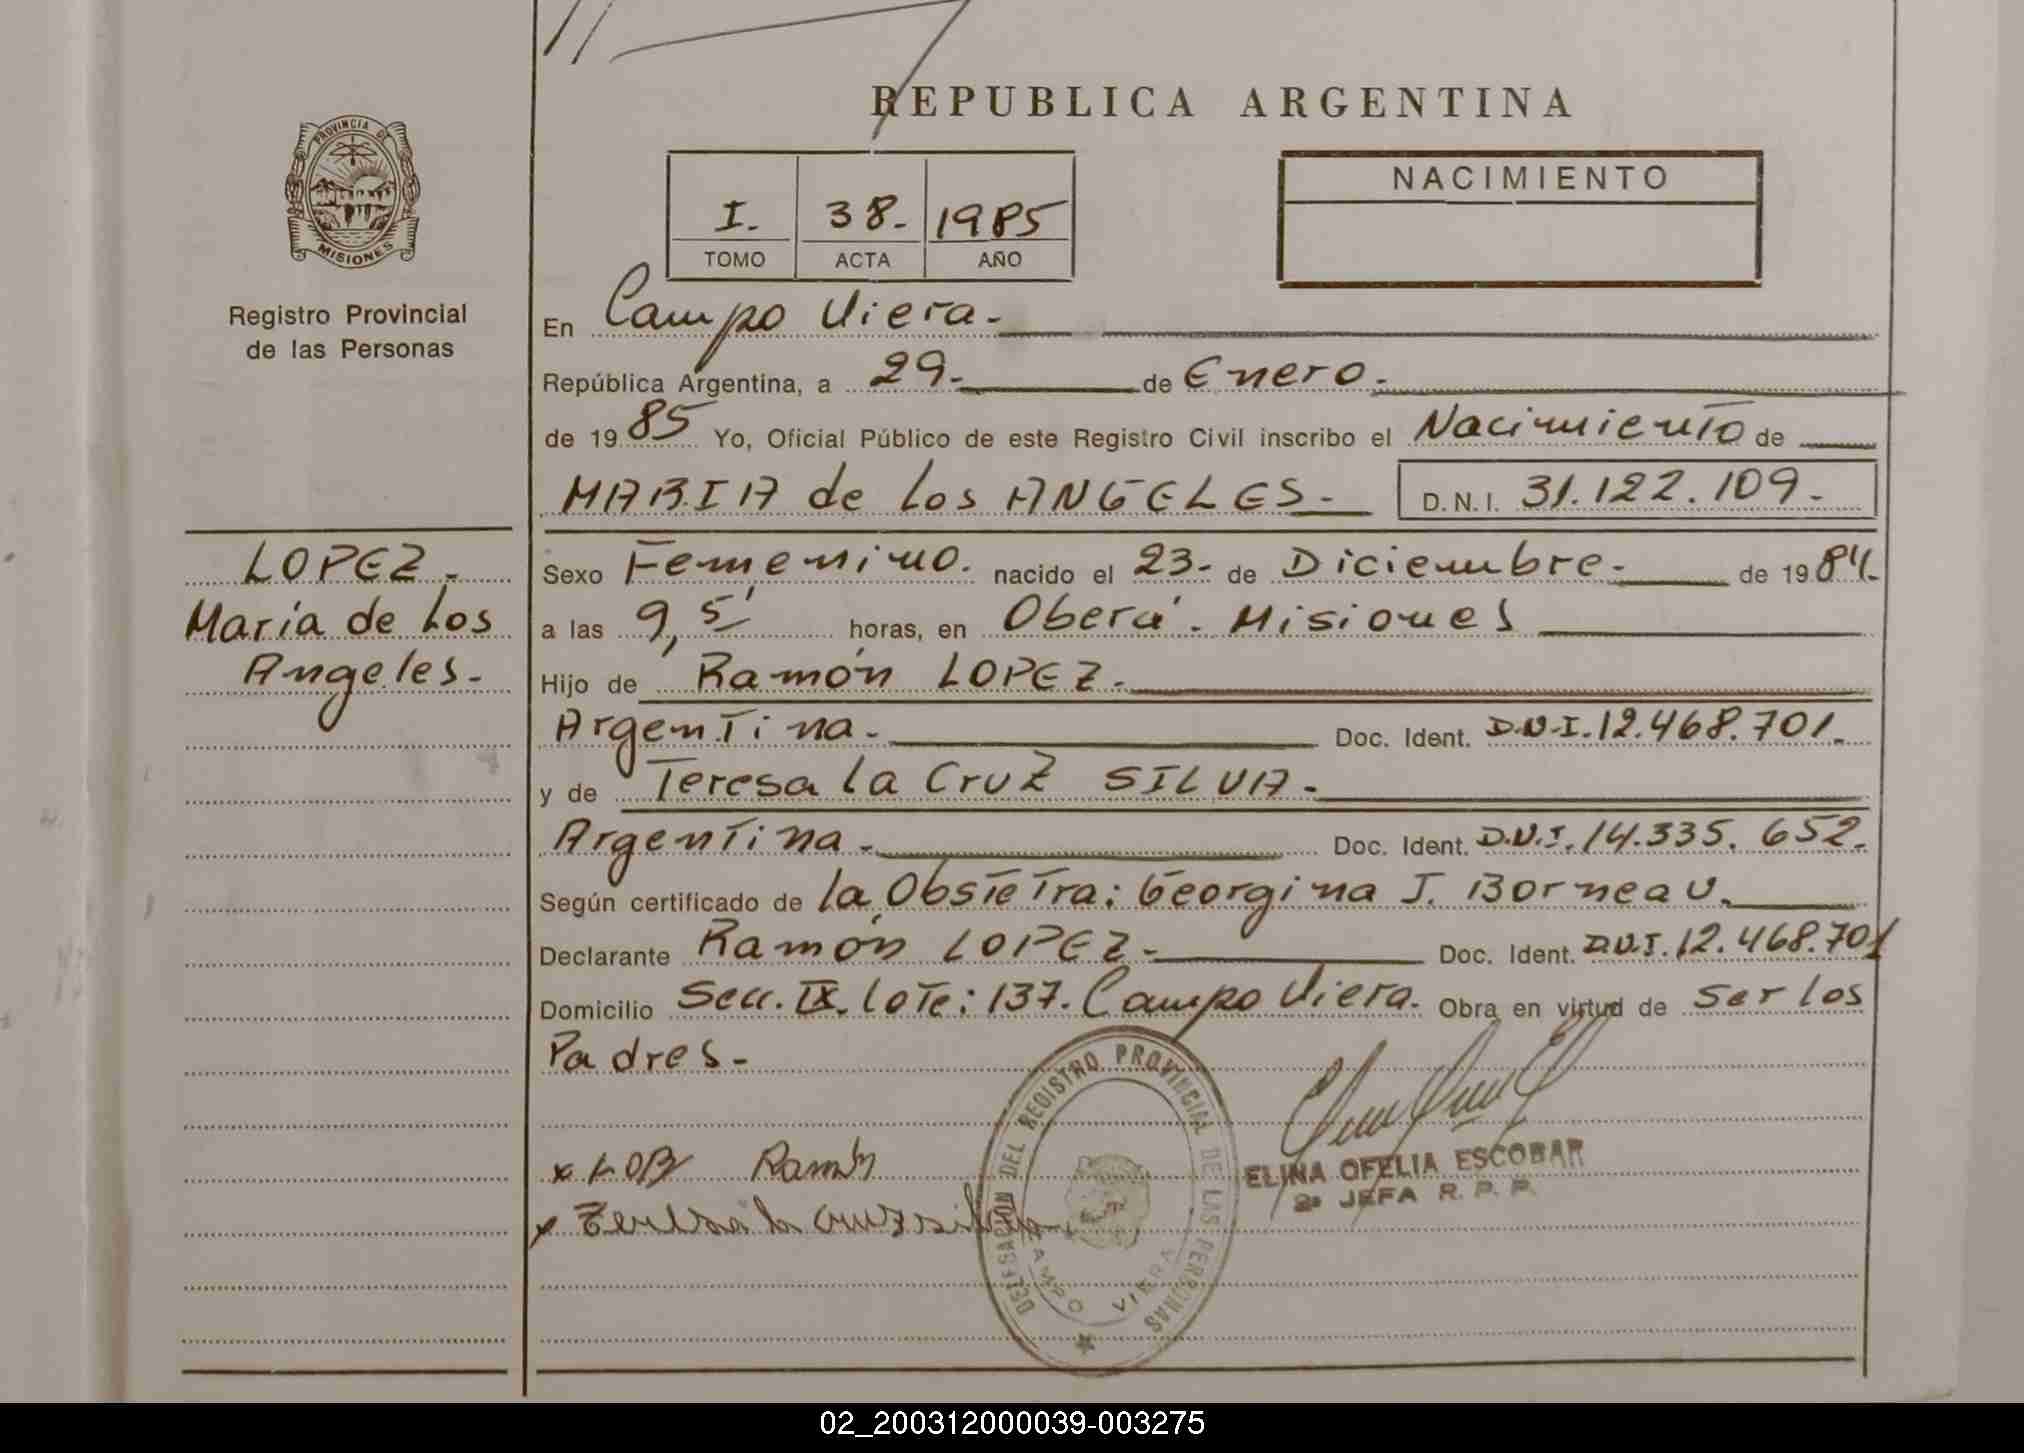 REPUBLICA ARGENTINA
PROVINCIA DE
MISIONES
Registro Provincial
de las Personas
I. 38. 1985
TOMO ACTA AÑO
NACIMIENTO
En Campo Viera.
República Argentina, a 29. de Enero.
de 19 85 Yo, Oficial Público de este Registro Civil inscribo el Nacimiento de
MARIA de los ANGELES. D.N.I. 31.122.109.
LOPEZ.
María de los
Angeles.
Sexo Femenino. nacido el 23. de Diciembre. de 19 84.
a las 9,5' horas, en Oberá. Misiones
Hijo de Ramón LOPEZ.
Argentina. Doc. Ident. D.N.I. 12.468.701.
y de Teresa la Cruz SILVA.
Argentina. Doc. Ident. D.N.I. 14.335.652.
Según certificado de la Obstetra: Georgina J. Borneau.
Declarante Ramón LOPEZ. Doc. Ident. D.N.I. 12.468.701
Domicilio Secc. IX. Lote: 137. Campo Viera. Obra en virtud de ser los
Padres.
DELEGACION DEL REGISTRO PROVINCIAL DE LAS PERSONAS
CAMPO VIERA
x Ramón
ELINA OFELIA ESCOBAR
2ª JEFA R. P. P.
x Teresa la cruz silva
02_200312000039-003275